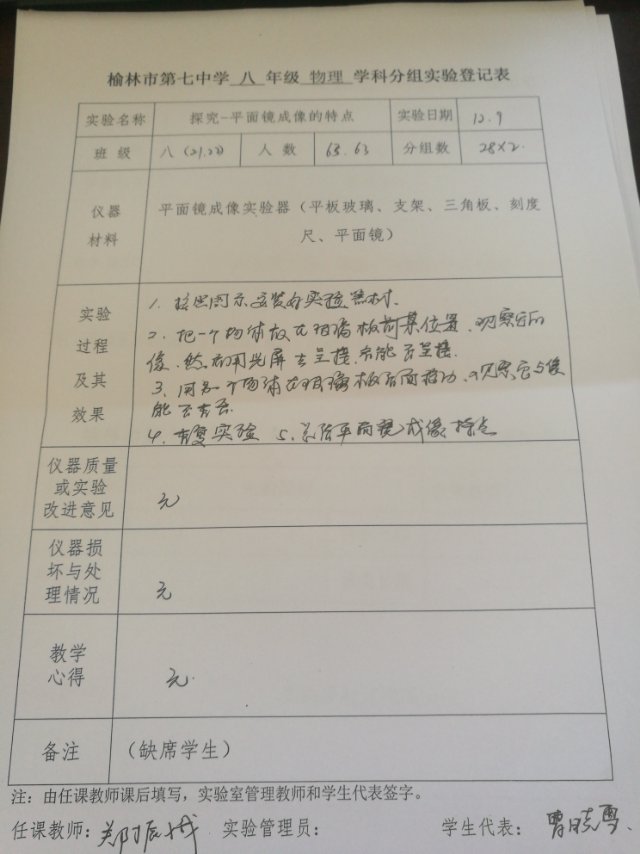 榆林市第七中学 八 年级 物理 学科分组实验登记表
实验名称 探究-平面镜成像的特点 实验日期 12.9
班 级 八(21.22) 人 数 63.63 分组数 28×2.
仪器材料 平面镜成像实验器（平板玻璃、支架、三角板、刻度尺、平面镜）
实验过程及其效果
1. 按照图示安装好实验器材.
2. 把一个物体放在玻璃板前某位置.观察它的
像.然后用光屏去呈接.看能否呈接.
3. 用另一个物体在玻璃板后面移动.观察它与像
能否重合
4. 重复实验 5. 总结平面镜成像特点
仪器质量或实验改进意见 无
仪器损坏与处理情况 无
教学心得 无.
备注 （缺席学生）
注：由任课教师课后填写，实验室管理教师和学生代表签字。
任课教师： 实验管理员： 学生代表：